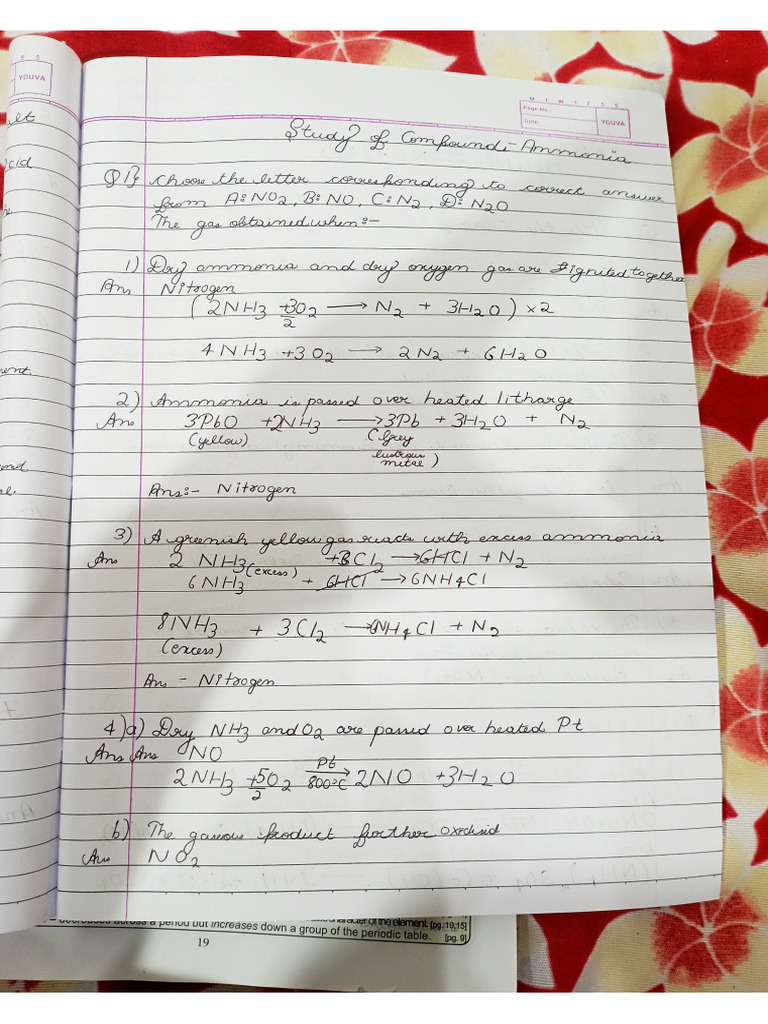 S S
YOUVA
elt
acid
ment
M T W T F S S
Page No.:
Date:
YOUVA
Study of Compound:- Ammonia
Q1} Choose the letter corresponding to correct answer
from A: NO2, B: NO, C: N2, D: N2O
The gas obtained when:-
1) Dry ammonia and dry oxygen gas are ignited together
Ans Nitrogen
(2NH3 + 3/2 O2 → N2 + 3H2O) × 2
4NH3 + 3O2 → 2N2 + 6H2O
2) Ammonia is passed over heated litharge
Ans 3PbO + 2NH3 → 3Pb + 3H2O + N2
(yellow) (Grey
lustrous
metal)
Ans:- Nitrogen
3) A greenish yellow gas reacts with excess ammonia
Ans 2 NH3 (excess) + 3Cl2 → 6HCl + N2
6NH3 + 6HCl → 6NH4Cl
8NH3 + 3Cl2 → 6NH4Cl + N2
(excess)
Ans - Nitrogen
4)a) Dry NH3 and O2 are passed over heated Pt
Ans Ans NO
2NH3 + 5/2 O2 Pt → 800°C 2NO + 3H2O
b) The gaseous product further oxidised
Ans NO2
character of the element. [pg. 10,15]
decreases across a period but increases down a group of the periodic table. [pg. 9]
19